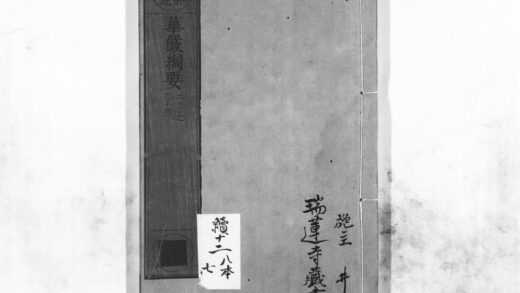 華嚴綱要
施主 井
瑞蓮寺藏
續十二八本
七